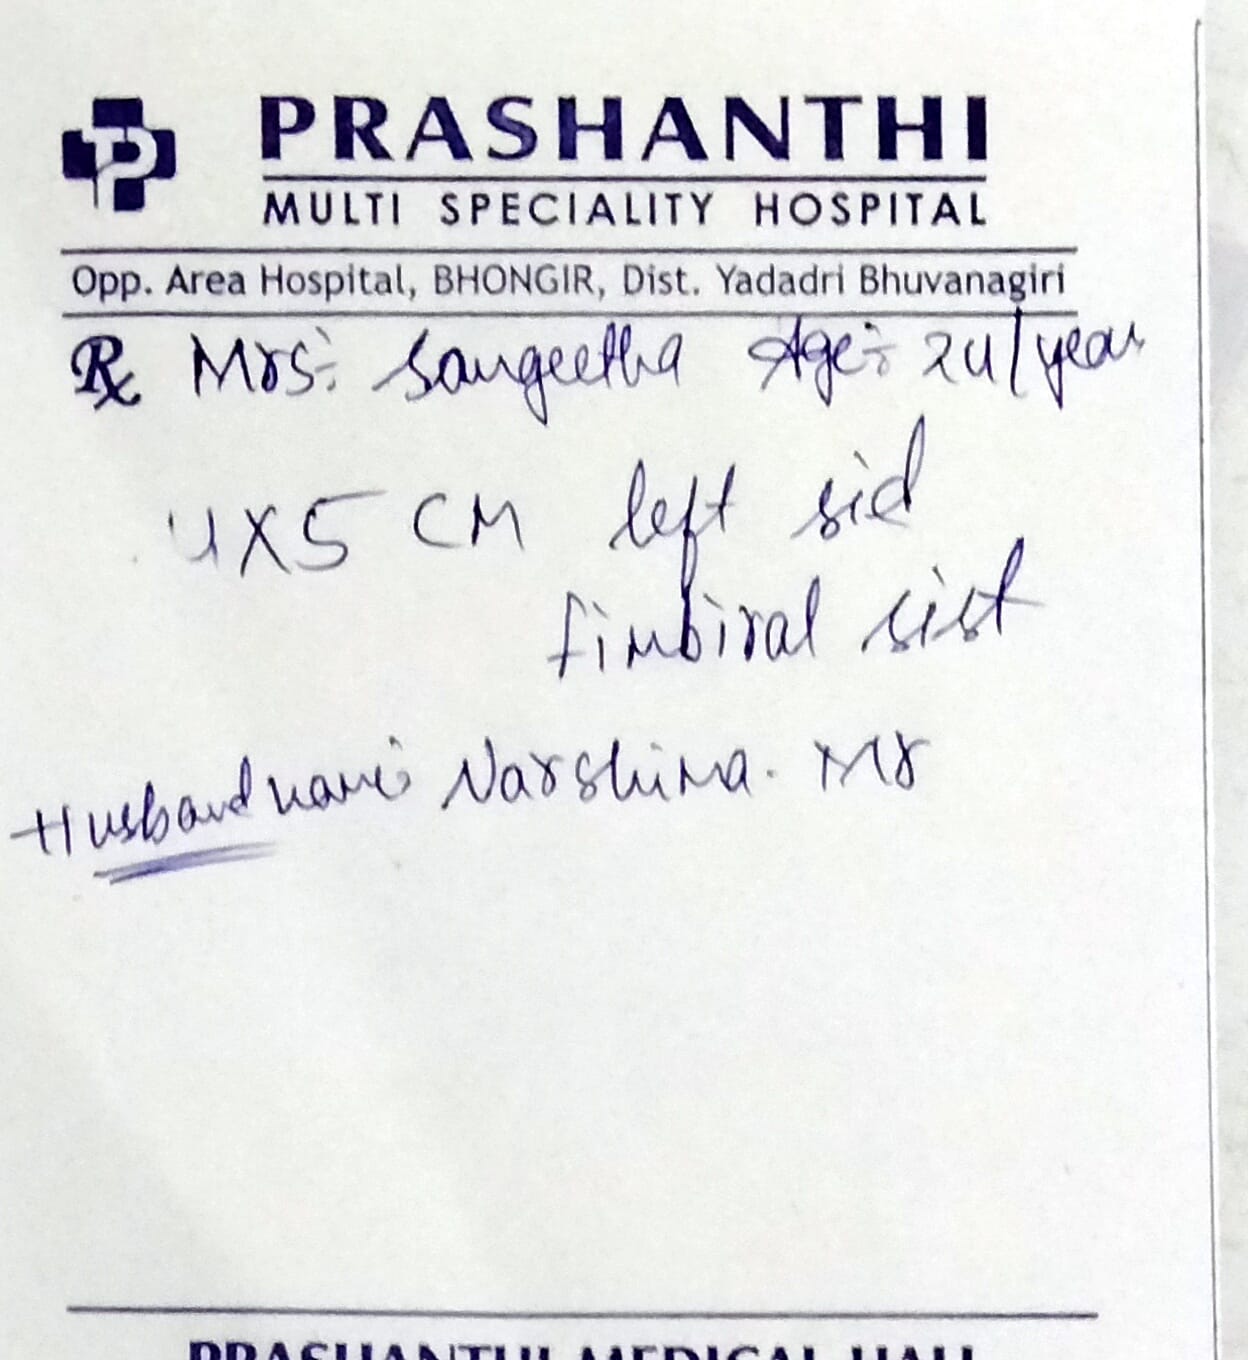 PRASHANTHI
MULTI SPECIALITY HOSPITAL
Opp. Area Hospital, BHONGIR, Dist. Yadadri Bhuvanagiri
Rx Mrs:- Sangeetha Age:- 24/year
4X5 CM left sid
fimbiral sist
Husband name: Narshima. Mr
PRASHANTHI MEDICAL HALL